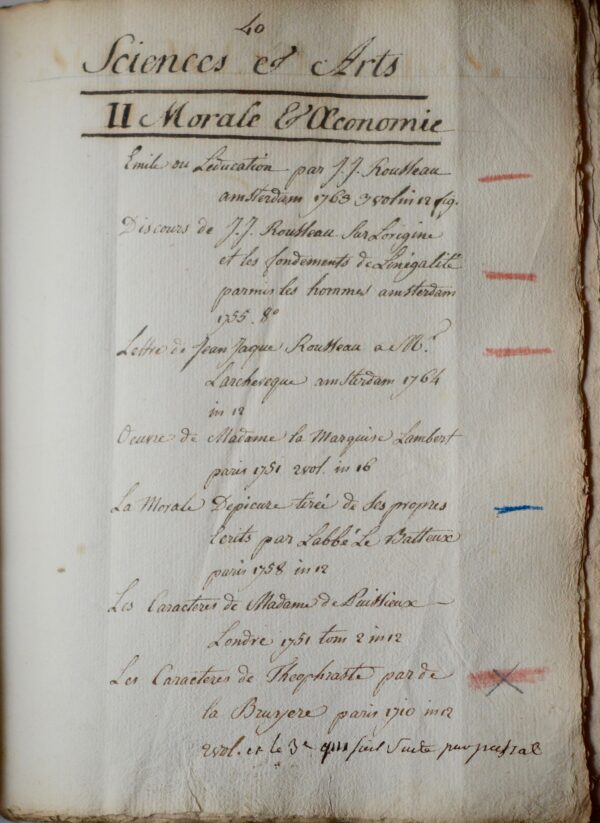 40
Sciences & Arts
II Morale & Œconomie
Emile ou Leducation par J. J. Rousseau
amsterdam 1763 3 vol in 12 fig.
Discours de J. J. Rousseau Sur Lorigine
et les fondements de Linégalité
parmis les hommes amsterdam
1755. 8º
Lettre de Jean Jaque Rousseau a Mr.
Larcheveque amsterdam 1764
in 12
Oeuvre de Madame la Marquise Lambert
paris 1751 2 vol. in 16
La Morale Depicure tirée de Ses propres
Ecrits par Labbé Le Batteux
paris 1758 in 12
Les Caracteres de Madame de Puissieux
Londre 1751 tom 2 in 12
Les Caracteres de Theophraste par de
la Bruyere paris 1710 in 12
2 vol. et le 3e qui fait Suite par